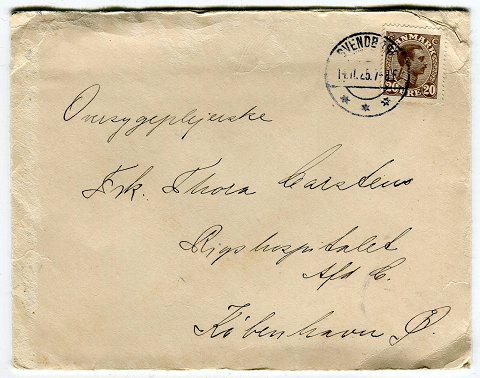 SVENDBORG
DANMARK
20 ØRE 20
Oversygeplejerske
Frk. Thora Carstens
Rigshospitalet
Afd C.
København Ø.